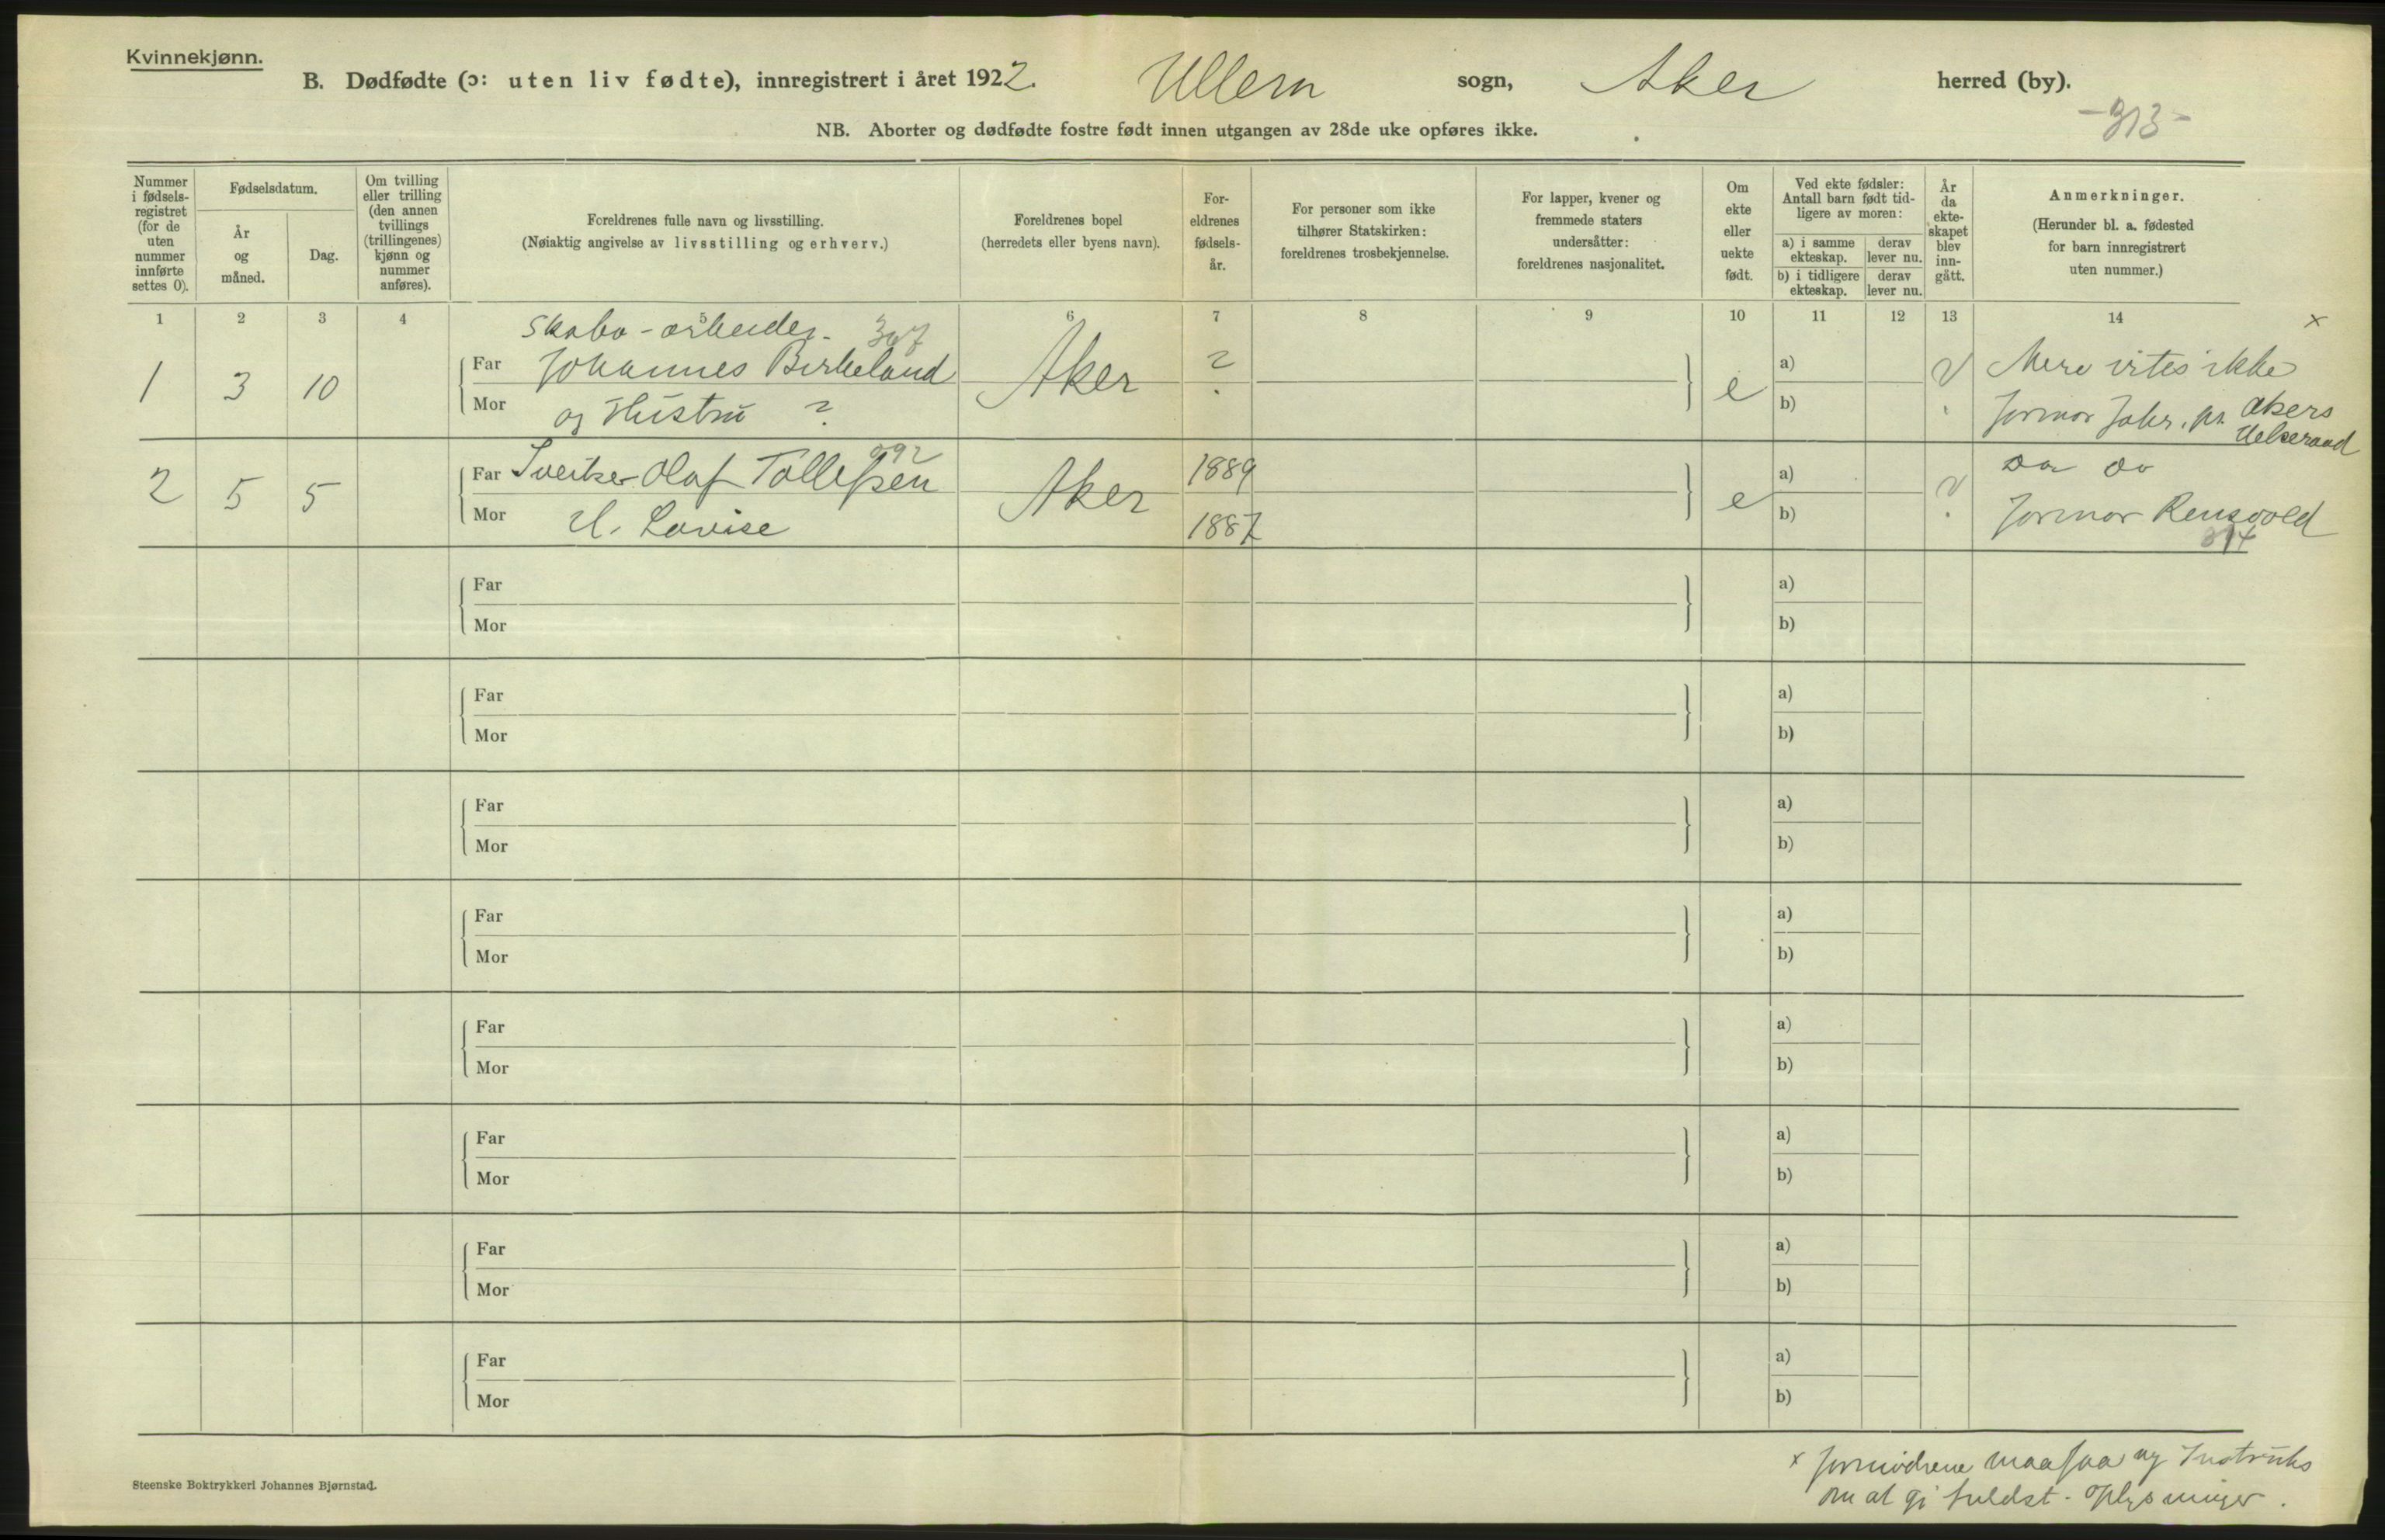 Kvinnekjønn.
B. Dødfødte (ɔ: uten liv fødte), innregistrert i året 1922. Ullern sogn, Aker herred (by).
-313-
NB. Aborter og dødfødte fostre født innen utgangen av 28de uke opføres ikke.
Nummer i fødsels-registret (for de uten nummer innførte settes 0).
Fødselsdatum.
År og måned.
Dag.
Om tvilling eller trilling (den annen tvillings (trillingenes) kjønn og nummer anføres).
Foreldrenes fulle navn og livsstilling.
(Nøiaktig angivelse av livsstilling og erhverv.)
Foreldrenes bopel
(herredets eller byens navn).
For-eldrenes fødsels-år.
For personer som ikke tilhører Statskirken: foreldrenes trosbekjennelse.
For lapper, kvener og fremmede staters undersåtter: foreldrenes nasjonalitet.
Om ekte eller uekte født.
Ved ekte fødsler: Antall barn født tid-ligere av moren:
a) i samme ekteskap.
derav lever nu.
b) i tidligere ekteskap.
derav lever nu.
År da ekte-skapet blev inn-gått.
Anmerkninger.
(Herunder bl. a. fødested for barn innregistrert uten nummer.)
1 2 3 4 5 6 7 8 9 10 11 12 13 14 x
Skabo-arbeider. 307
1 3 10 Far Johannes Birkeland Aker ? e a) ? Mere vites ikke
Mor og Hustru ? b) Jormor Jahr. pr. Akers
Helseraad
092
2 5 5 Far Sveitser Olaf Tollefsen Aker 1889 e a) ? do do
Mor H. Lovise 1887 b) Jormor Rensvold
314
Far a)
Mor b)
Far a)
Mor b)
Far a)
Mor b)
Far a)
Mor b)
Far a)
Mor b)
Far a)
Mor b)
Far a)
Mor b)
Far a)
Mor b)
x Jormødrene maa faa ny Instruks
om at gi fuldst. oplysninger.
Steenske Boktrykkeri Johannes Bjørnstad.